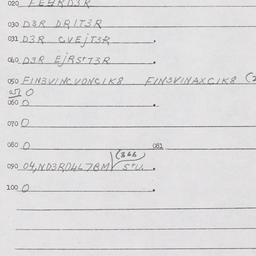 020 FEHRD3R
030 D3R DRIT3R
031 D3R CVEJT3R .
040 D3R EJRST3R .
050 FIN3VINCVONCIK8 FIN3VINAXCIK8 (2
051 O
060 O .
070 O
080 O 081
(866
090 04,ND3R,D467BM STU. .
100 O .